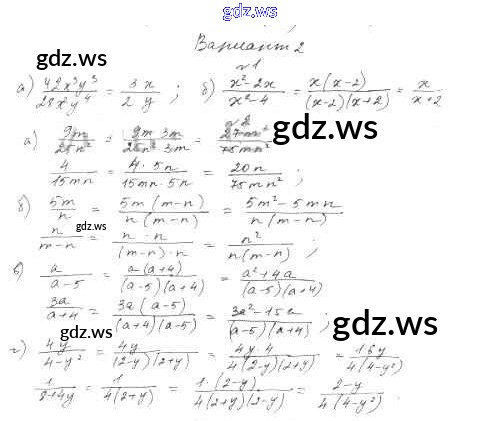 gdz.ws
Вариант 2
№1
а) 42x³y³/28x²y⁴ = 3x/2y ; б) x²-2x/x²-4 = x(x-2)/(x-2)(x+2) = x/x+2
gdz.ws
№2
а) 9m/25n² = 9m·3m/25n²·3m = 27m²/75mn²
gdz.ws
4/15mn = 4·5n/15mn·5n = 20n/75mn² ;
б) 5m/n = 5m(m-n)/n(m-n) = 5m²-5mn/n(m-n)
n/m-n = n·n/(m-n)·n = n²/n(m-n) ;
в) a/a-5 = a(a+4)/(a-5)(a+4) = a²+4a/(a-5)(a+4)
3a/a+4 = 3a(a-5)/(a+4)(a-5) = 3a²-15a/(a-5)(a+4) ;
gdz.ws
gdz.ws
г) 4y/4-y² = 4y/(2-y)(2+y) = 4y·4/4(2-y)(2+y) = 16y/4(4-y²)
1/8+4y = 1/4(2+y) = 1·(2-y)/4(2+y)(2-y) = 2-y/4(4-y²) .